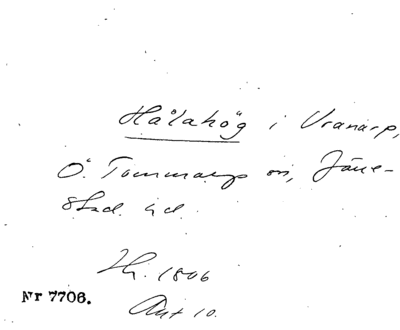 Hålahög i Vranarp,
Ö. Tommarps sn, Järre-
stad hd.
Hr. 1806
Nr 7706.
Ant 10.